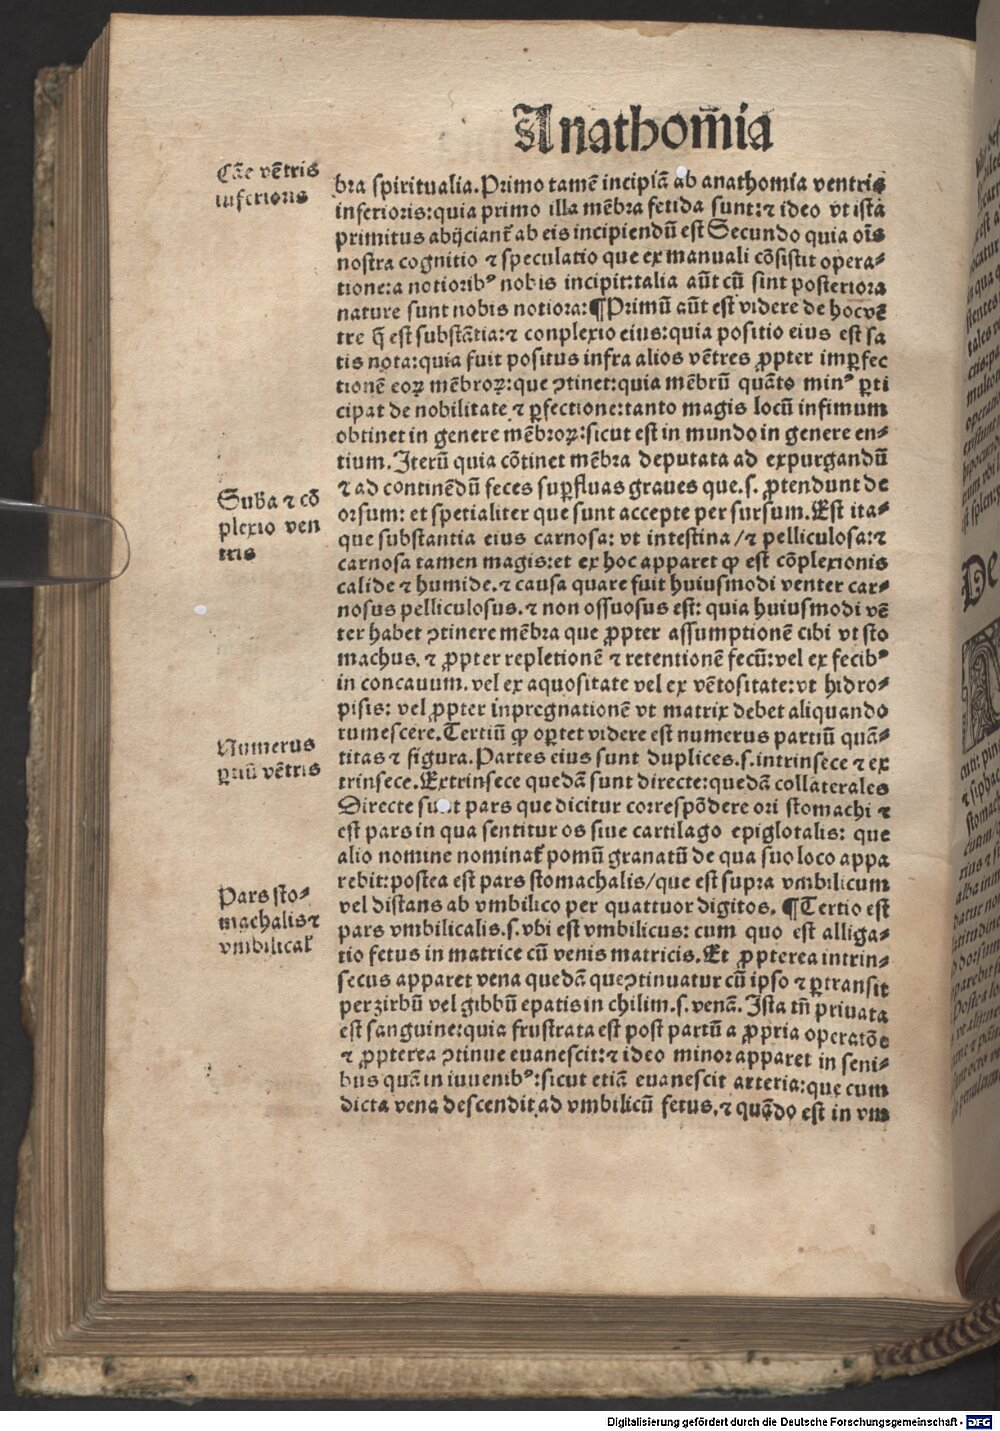 Anathom̄ia
Cāe vētris
inferioris
bra spiritualia. Primo tamē incipiā ab anathomia ventris
inferioris: quia primo illa mēbra fetida sunt: ⁊ ideo vt ista
primitus abijciant᷑ ab eis incipiendū est Secundo quia oīs
nostra cognitio ⁊ speculatio que ex manuali cōsistit opera⸗
tione: a notioribꝰ nobis incipit: talia aūt cū sint posteriora
nature sunt nobis notiora: ¶Primū aūt est videre de hoc vē
tre q̄ est substātia: ⁊ conplexio eius: quia positio eius est sa
tis nota: quia fuit positus infra alios vētres ꝓpter imꝑfec
tionē eoꝝ mēbroꝝ: que ꝯtinet: quia mēbrū quāto minꝰ ꝑti
cipat de nobilitate ⁊ ꝑfectione: tanto magis locū infimum
obtinet in genere mēbroꝝ: sicut est in mundo in genere en⸗
tium. Iterū quia cōtinet mēbra deputata ad expurgandū
Suba ⁊ cō
plexio ven
tris
⁊ ad continēdū feces suꝑfluas graues que .s. ꝓtendunt de
orsum: et spetialiter que sunt accepte per sursum. Est ita⸗
que substantia eius carnosa: vt intestina / ⁊ pelliculosa: ⁊
carnosa tamen magis: et ex hoc apparet ꝙ est cōplexionis
calide ⁊ humide. ⁊ causa quare fuit huiusmodi venter car⸗
nosus pelliculosus. ⁊ non ossuosus est: quia huiusmodi vē
ter habet ꝯtinere mēbra que ꝓpter assumptionē cibi vt sto
machus. ⁊ ꝓpter repletionē ⁊ retentionē fecū: vel ex fecibꝰ
in concauum. vel ex aquositate vel ex vētositate: vt hidro⸗
pisis: vel ꝓpter inpregnationē vt matrix debet aliquando
Numerus
ꝑtiū vētris
tumescere. Tertiū ꝙ oꝑtet videre est numerus partiū quā⸗
titas ⁊ figura. Partes eius sunt duplices .s. intrinsece ⁊ ex
trinsece. Extrinsece quedā sunt directe: quedā collaterales
Directe sunt pars que dicitur correspōdere ori stomachi ⁊
est pars in qua sentitur os siue cartilago epiglotalis: que
alio nomine nominat᷑ pomū granatū de qua suo loco appa
Pars sto⸗
machalis ⁊
vmbilical᷑
rebit: postea est pars stomachalis / que est supra vmbilicum
vel distans ab vmbilico per quattuor digitos. ¶Tertio est
pars vmbilicalis .s. vbi est vmbilicus: cum quo est alliga⸗
tio fetus in matrice cū venis matricis. Et ꝓpterea intrin⸗
secus apparet vena quedā que ꝯtinuatur cū ipso ⁊ ꝑtransit
per zirbū vel gibbū epatis in chilim .s. venā. Ista tn̄ priuata
est sanguine: quia frustrata est post partū a ꝓpria operatōe
⁊ ꝓpterea ꝯtinue euanescit: ⁊ ideo minor apparet in seni⸗
bus quā in iuuenibꝰ: sicut etiā euanescit arteria: que cum
dicta vena descendit ad vmbilicū fetus, ⁊ quādo est in vm
Digitalisierung gefördert durch die Deutsche Forschungsgemeinschaft - DFG